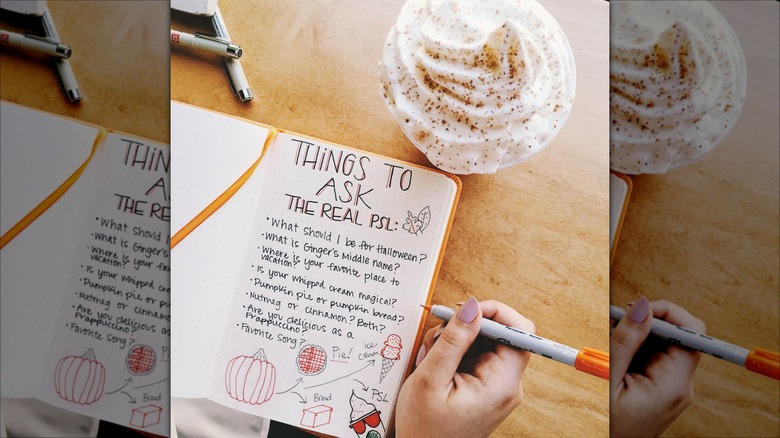 THINGS TO
ASK
THE REAL PSL:
• What should I be for Halloween?
• What is Ginger's Middle name?
• Where is your favorite place to
vacation?
• Is your whipped cream magical?
• Pumpkin pie or pumpkin bread?
• Nutmeg or cinnamon? Both?
• Are you delicious as a
Frappuccino?
• Favorite song?
Pie!
ice
cream
Bread
PSL